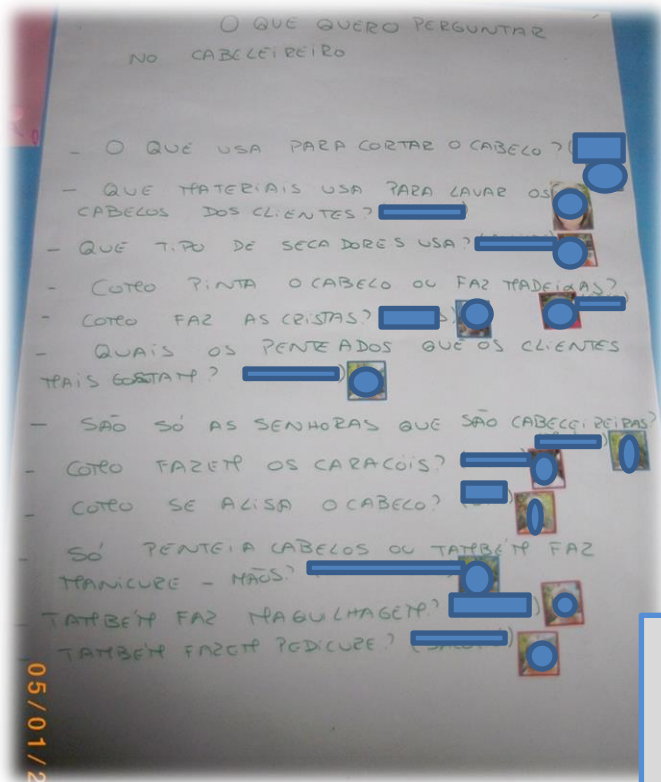 O QUE QUERO PERGUNTAR
NO CABELEIREIRO
- O QUE USA PARA CORTAR O CABELO? (
- QUE MATERIAIS USA PARA LAVAR OS
CABELOS DOS CLIENTES?
- QUE TIPO DE SECADORES USA?
- COMO PINTA O CABELO OU FAZ MADEIXAS?
- COMO FAZ AS CRISTAS?
- QUAIS OS PENTEADOS QUE OS CLIENTES
MAIS GOSTAM?
- SÃO SÓ AS SENHORAS QUE SÃO CABELEIREIRAS?
- COMO FAZEM OS CARACOIS?
- COMO SE ALISA O CABELO?
- SÓ PENTEIA CABELOS OU TAMBÉM FAZ
MANICURE - MÃOS?
- TAMBÉM FAZ MAQUILHAGEM?
- TAMBÉM FAZEM PEDICURE?
05/01/2